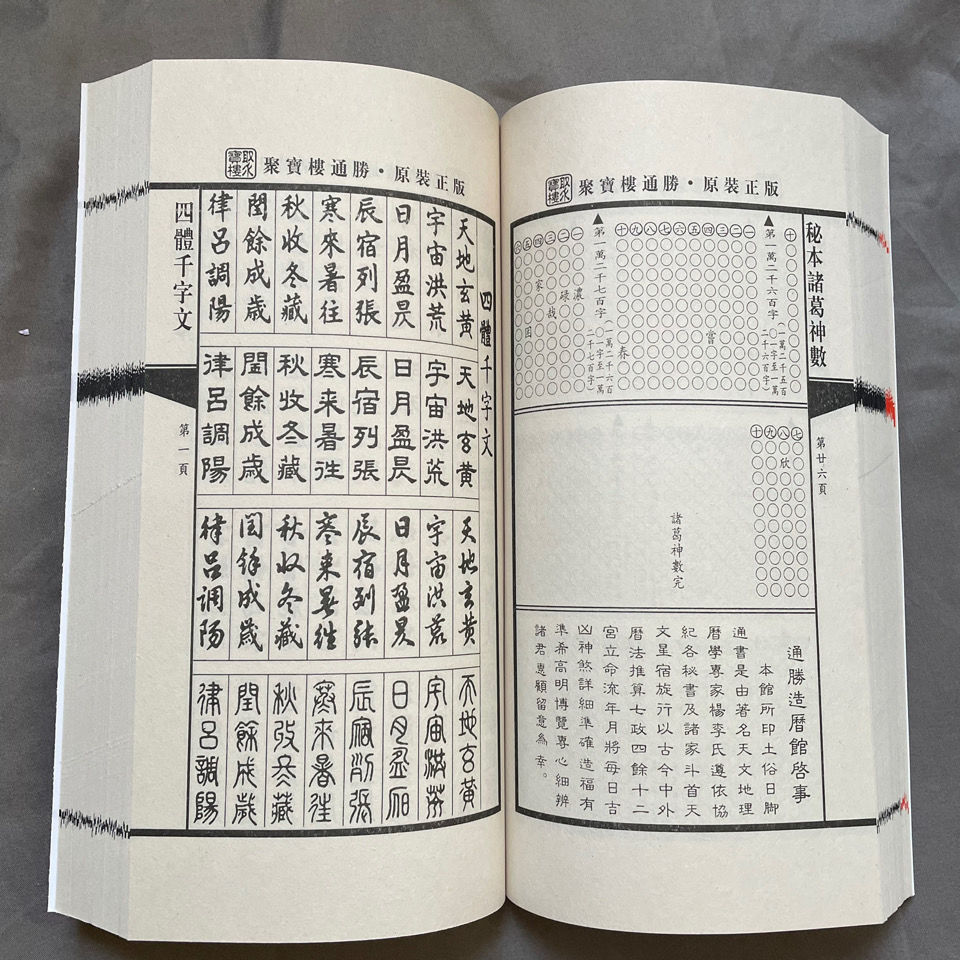 聚寶樓
聚寶樓通勝・原裝正版
秘本諸葛神數
第廿六頁
十
▲第一萬二千六百字
一萬二千五百
〇一字至一萬
二千六百字
一
二
三
四 嘗
五
六
七
八
九
十 春
▲第一萬二千七百字
一萬二千六百
〇一字至一萬
二千七百字
一 濃
二 碌
三 哉
四 家
五
六
七
八 欣
九
十
諸葛神數完
通勝造曆館啓事
本館所印土俗日脚
通書是由著名天文地理
曆學專家楊李氏遵依協
紀各秘書及諸家斗首天
文星宿旋行以古今中外
曆法推算七政四餘十二
宮立命流年月將每日吉
凶神煞詳細準確造福有
準希高明博覽專心細辨
諸君惠顧留意為幸。
聚寶樓
聚寶樓通勝・原裝正版
四體千字文
天地玄黃
宇宙洪荒
日月盈昃
辰宿列張
寒來暑往
秋收冬藏
閏餘成歲
律呂調陽
天地玄黃
宇宙洪荒
日月盈昃
辰宿列張
寒來暑往
秋收冬藏
閏餘成歲
律呂調陽
天地玄黃
宇宙洪荒
日月盈昃
辰宿列張
寒來暑往
秋收冬藏
閏餘成歲
律呂調陽
天地玄黃
宇宙洪荒
日月盈昃
辰宿列張
寒來暑往
秋收冬藏
閏餘成歲
律呂調陽
四體千字文
第一頁